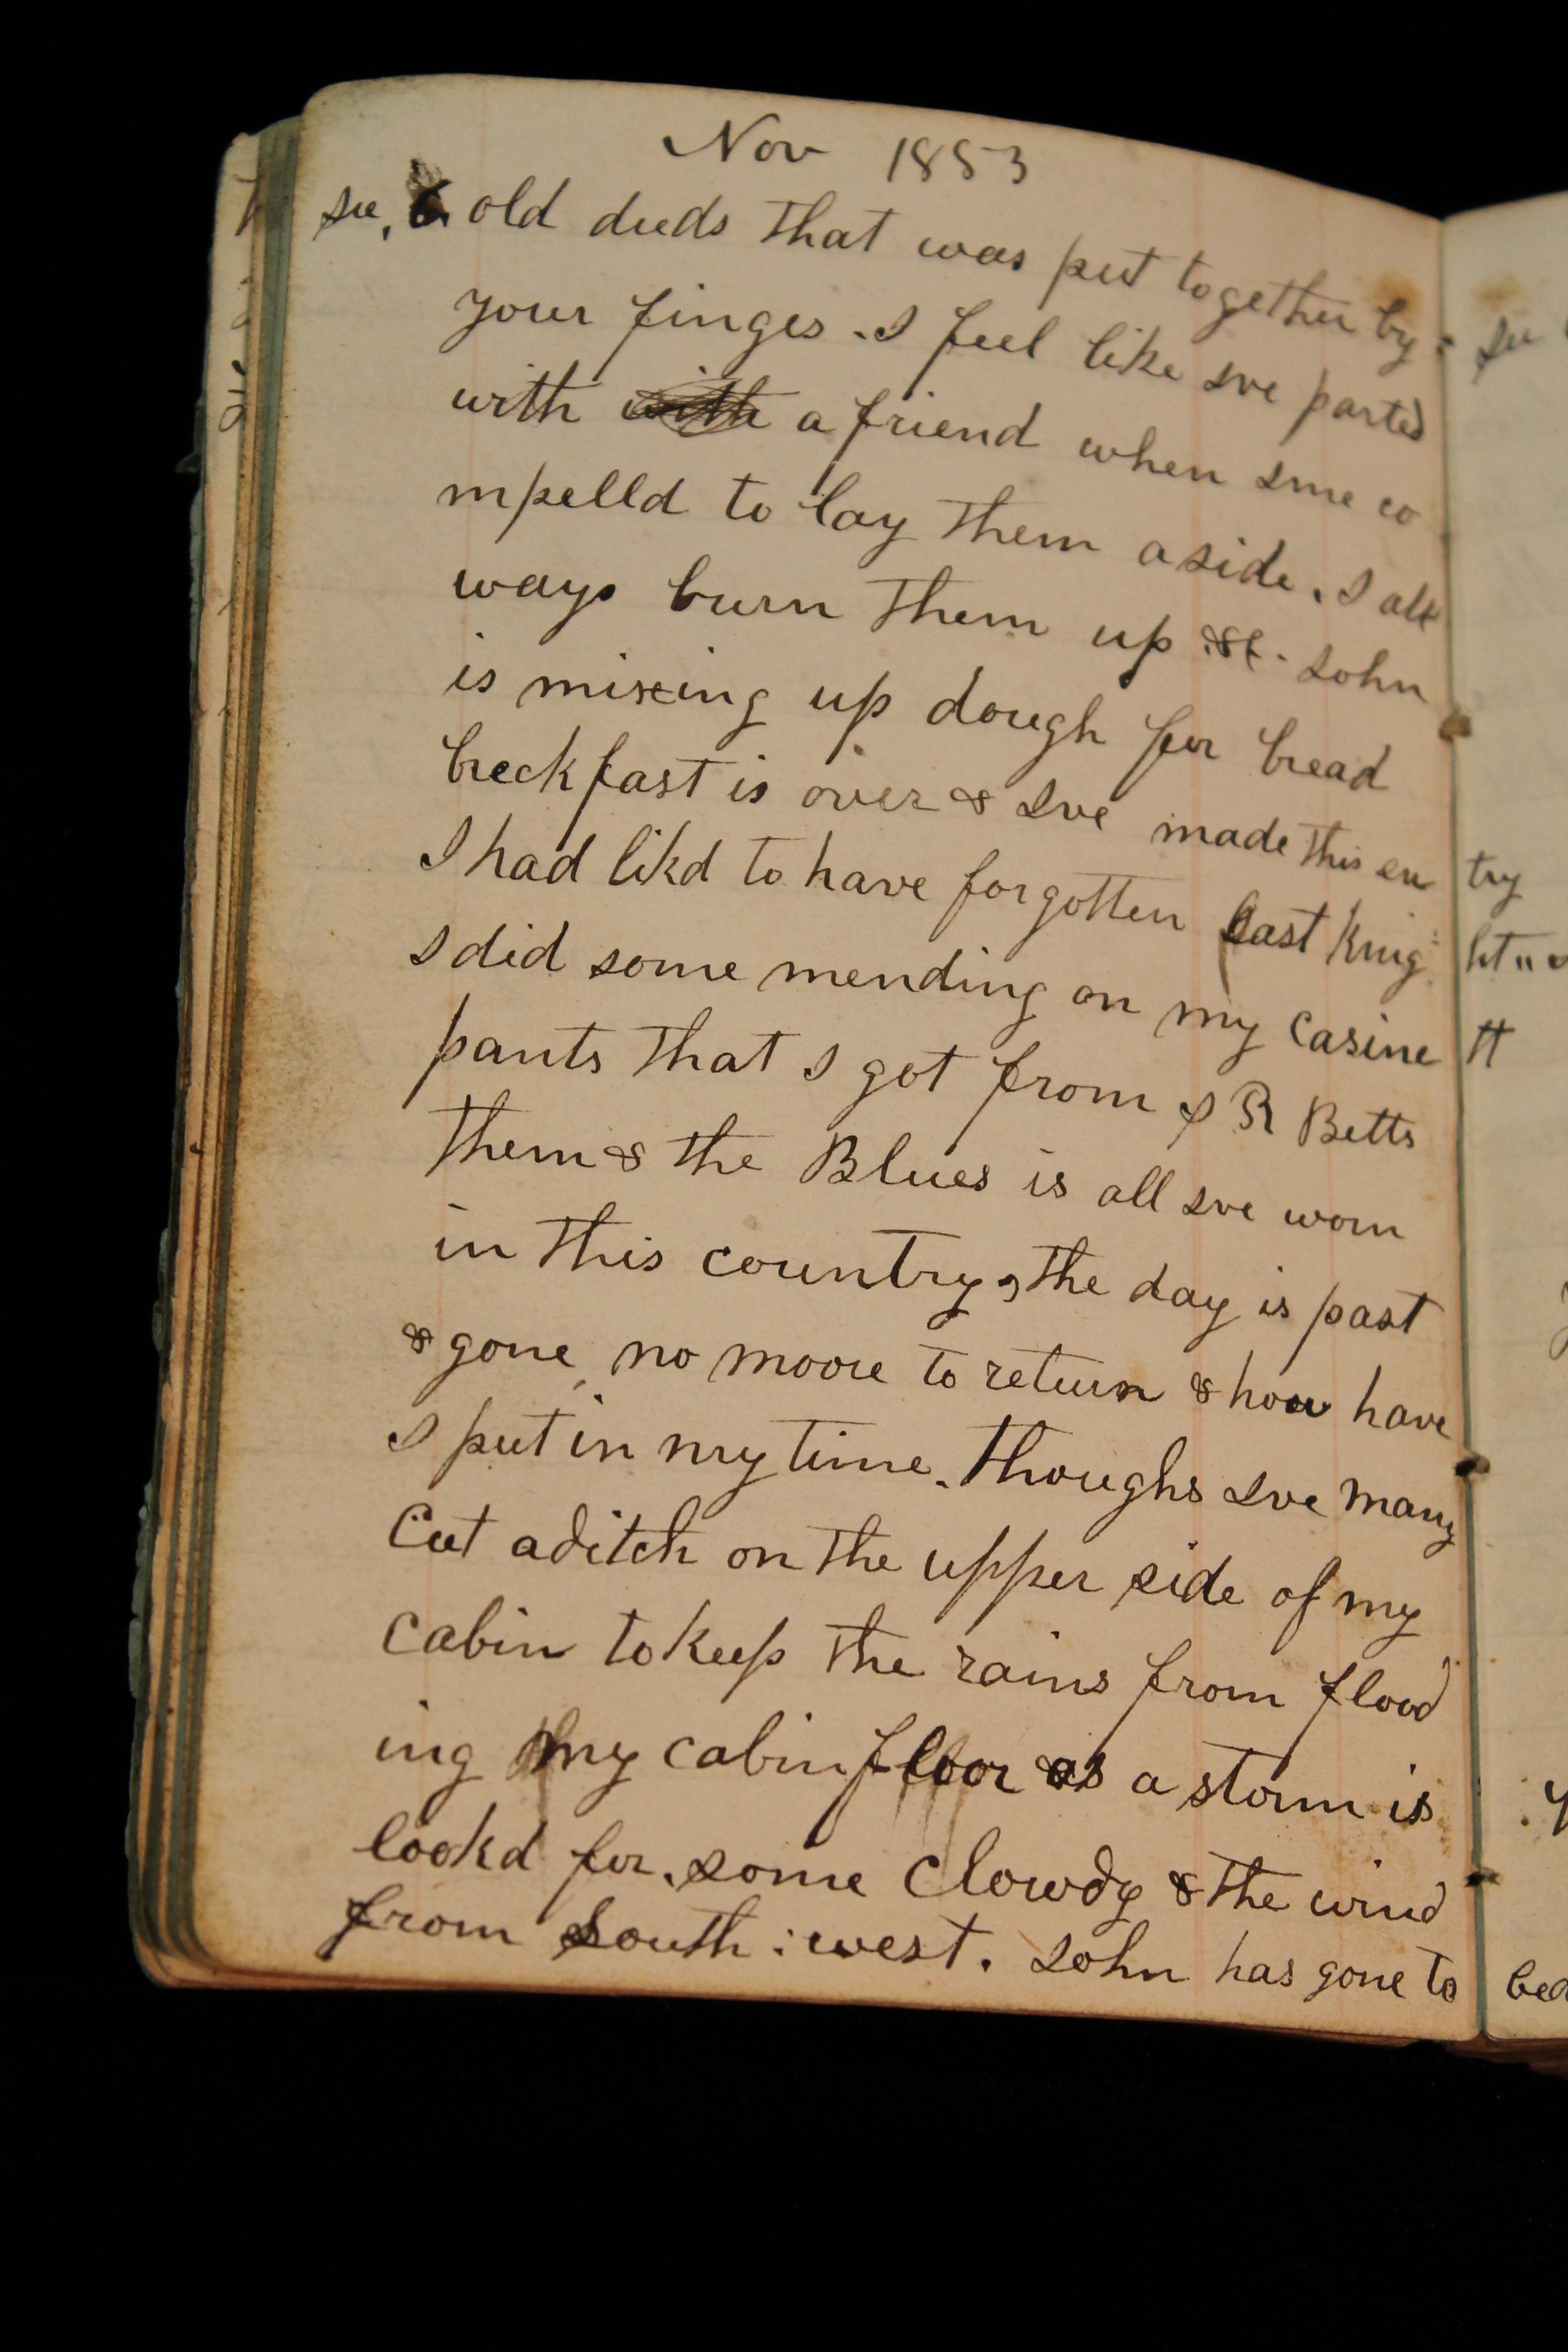 Nov 1853
see, 6 old duds that was put together by
your finges. I feel like Ive parted
with with a friend when Ime co
mpelld to lay them aside. I all
ways burn them up &c. John
is mixing up dough for bread
breckfast is over & Ive made this en try
I had likd to have forgotten Last knig ht
I did some mending on my casine tt
pants that I got from S R Betts
them & the Blues is all Ive worn
in this country, the day is past
& gone, no moore to return & how have
I put in my time. Thoughs Ive many
Cut a ditch on the upper side of my
cabin to keep the rains from flood
ing my cabin floor as a storm is
lookd for. some Clowdy & the wind
from South : west. John has gone to bed